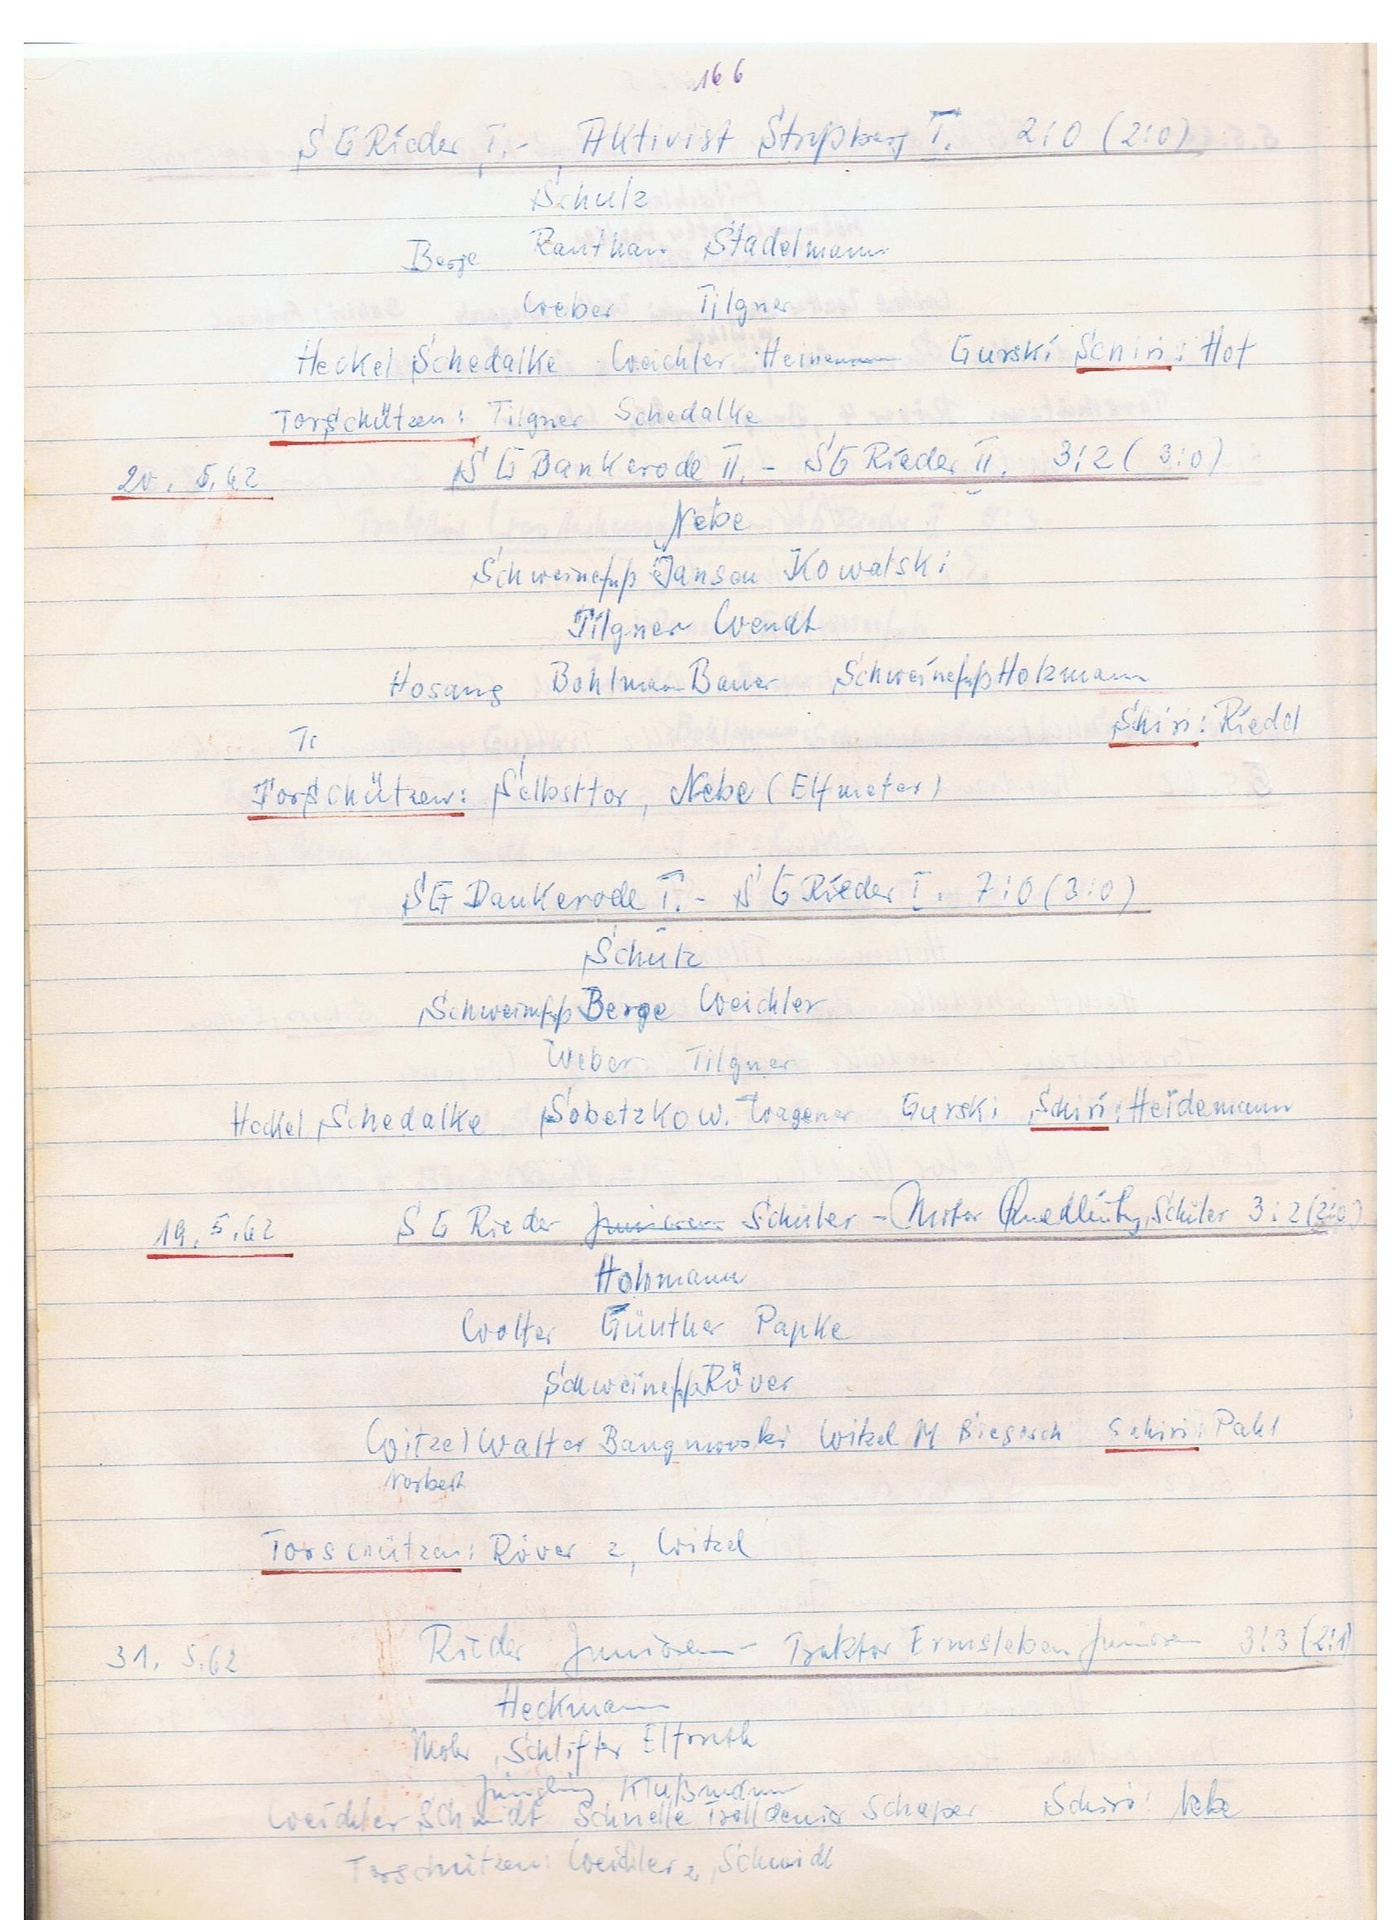 166
SG Rieder I. - Aktivist Straßberg I. 2:0 (2:0)
Schulz
Berge Ranthan Stadelmann
Weber Tilgner
Heckel Schedalke Weichler Heinemann Gurski Schiri: Hof
Torschützen: Tilgner Schedalke
20. 5. 62 SG Dankerode II. - SG Rieder II. 3:2 (3:0)
Nebe
Schweinefuß Janson Kowalski
Tilgner Wendt
Hosang Bohlmann Bauer Schweinefuß Holzmann
To Shiri: Riedel
Torschützen: Selbsttor, Nebe (Elfmeter)
SG Dankerode I. - SG Rieder I. 7:0 (3:0)
Schulz
Schweinefuß Berge Weichler
Weber Tilgner
Heckel Schedalke Sobetzko W. Wagener Gurski Schiri: Heidemann
19. 5. 62 SG Rieder Junioren Schüler - Motor Quedlinbg. Schüler 3:2 (2:0)
Holzmann
Wolter Günther Papke
Schweinefuß Röver
Witzel Walter Witzel M Schiri: Pahl
Norbert
Torschützen: Röver 2, Witzel
31. 5. 62 Rieder Junioren - Traktor Ermsleben Junioren 3:3 (2:1)
Heckmann
Mohr Schlifter
Jüngling Klußmann
Weichler Schmidt Schnelle Schaper Schiri: Nebe
Torschützen: Weichler 2, Schmidt